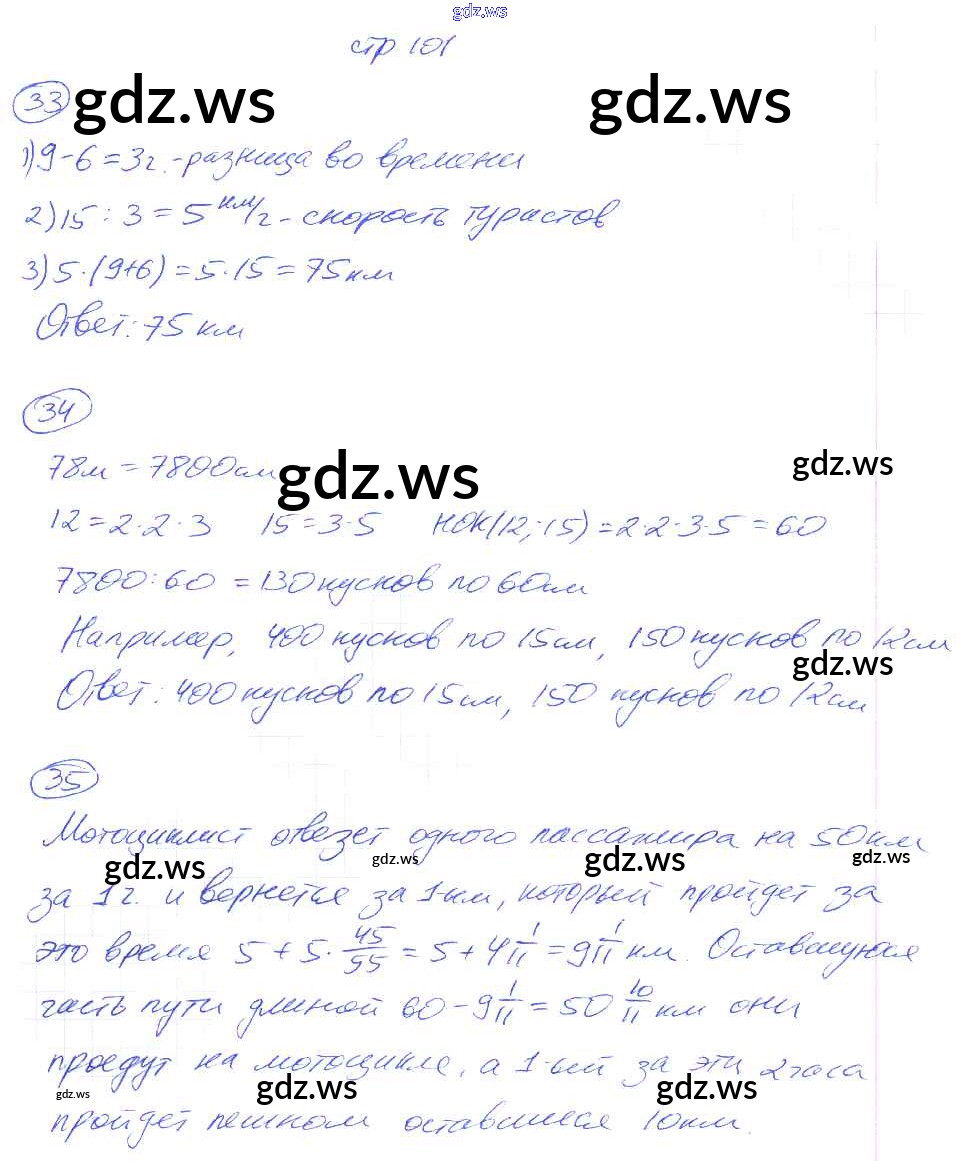 gdz.ws
стр 101
33 gdz.ws gdz.ws
1) 9 - 6 = 3 г. - разница во времени
2) 15 : 3 = 5 км/г - скорость туристов
3) 5 · (9+6) = 5 · 15 = 75 км
Ответ: 75 км
34
78 м = 7800 см gdz.ws gdz.ws
12 = 2 · 2 · 3 15 = 3 · 5 НОК(12; 15) = 2 · 2 · 3 · 5 = 60
7800 : 60 = 130 кусков по 60 см
Например, 400 кусков по 15 см, 150 кусков по 12 см
gdz.ws
Ответ: 400 кусков по 15 см, 150 кусков по 12 см
35
Мотоциклист отвезет одного пассажира на 50 км
gdz.ws gdz.ws gdz.ws gdz.ws
за 1 г. и вернется за 1-ым, который пройдет за
это время 5 + 5 · 45/55 = 5 + 4 1/11 = 9 1/11 км. Оставшуюся
часть пути длиной 60 - 9 1/11 = 50 10/11 км они
проедут на мотоцикле, а 1-ый за эти 2 часа
gdz.ws gdz.ws gdz.ws
пройдет пешком оставшиеся 10 км.